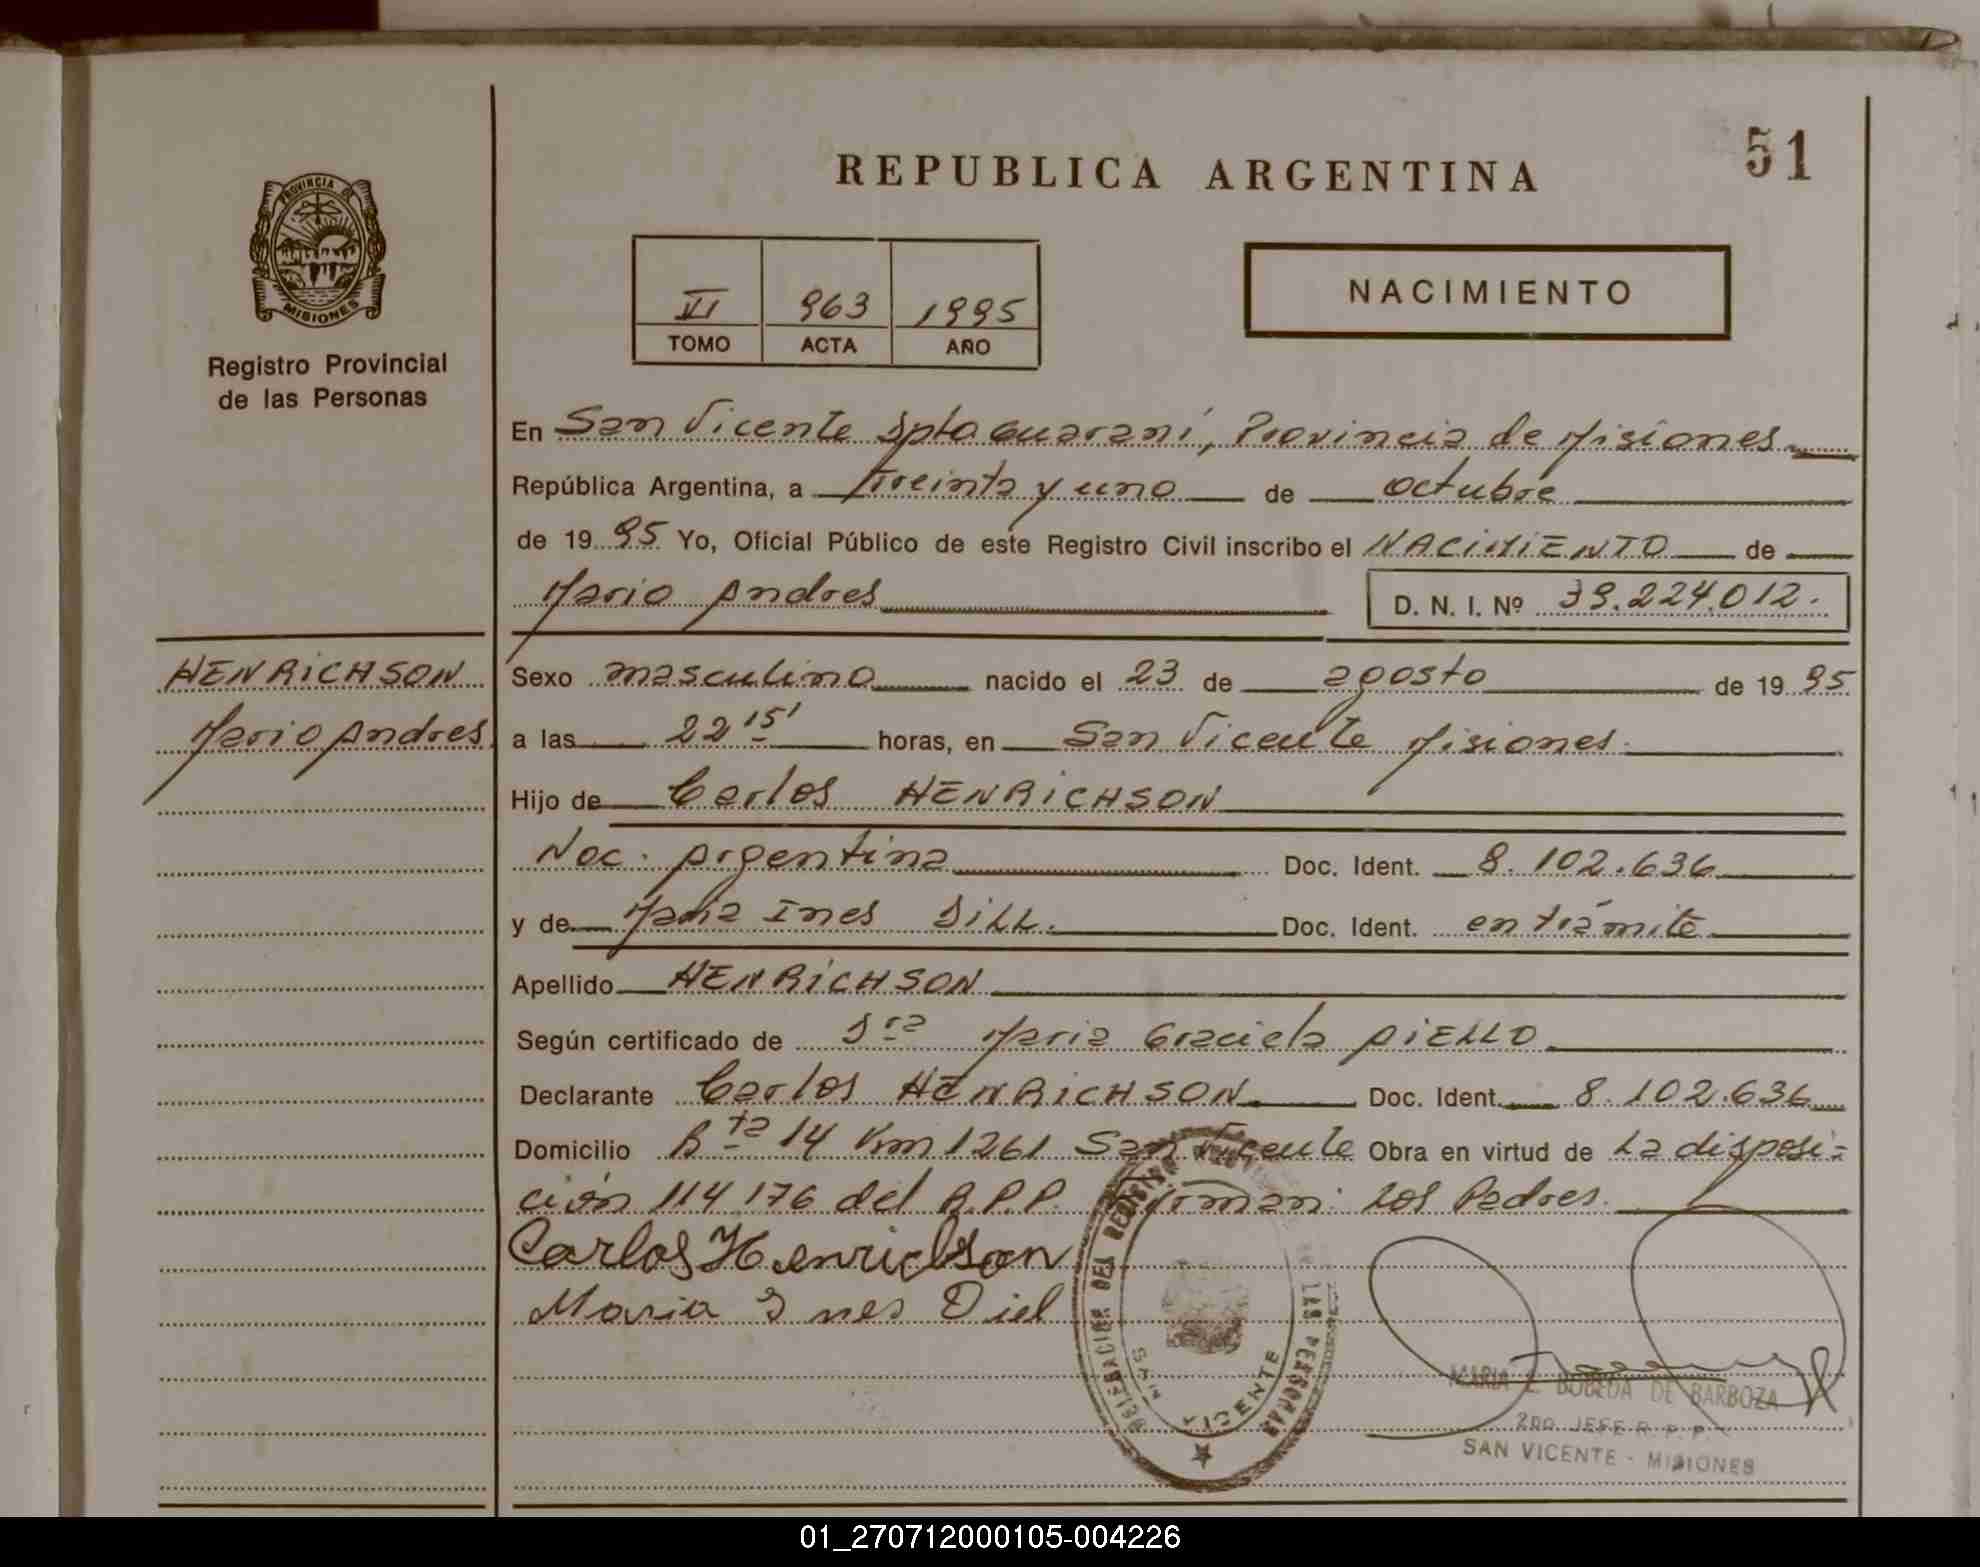 51
REPUBLICA ARGENTINA
PROVINCIA DE
MISIONES
Registro Provincial
de las Personas
VI 963 1995
TOMO ACTA AÑO
NACIMIENTO
En San Vicente Dpto Guaraní, Provincia de Misiones
República Argentina, a Treinta y uno de octubre
de 1995 Yo, Oficial Público de este Registro Civil inscribo el NACIMIENTO de
Mario Andres D. N. I. Nº 39.224.012.
HENRICHSON
Mario Andres
Sexo masculino nacido el 23 de agosto de 1995
a las 22 15' horas, en San Vicente Misiones.
Hijo de Carlos HENRICHSON
Nac. Argentina Doc. Ident. 8.102.636
y de Maria Ines DILL. Doc. Ident. en trámite
Apellido HENRICHSON
Según certificado de Dra Maria Graciela AIELLO
Declarante Carlos HENRICHSON Doc. Ident. 8.102.636
Domicilio Rta 14 Km 1261 San Vicente Obra en virtud de La disposi-
ción 114/76 del R.P.P. Firman: Los Padres.
Carlos Henrichson
Maria Ines Diel
DELEGACION DEL REGISTRO DE LAS PERSONAS
SAN VICENTE
MARIA E. BOBEDA DE BARBOZA
2DO JEFE R. P. P.
SAN VICENTE - MISIONES
01_270712000105-004226